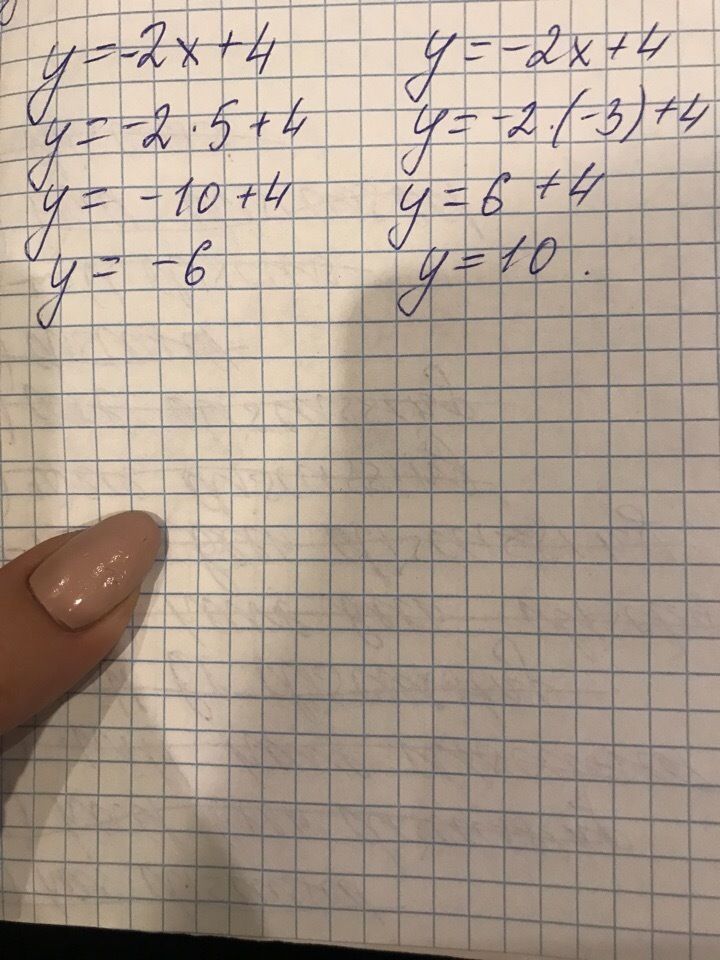 y = -2x + 4
y = -2 · 5 + 4
y = -10 + 4
y = -6
y = -2x + 4
y = -2 · (-3) + 4
y = 6 + 4
y = 10 .